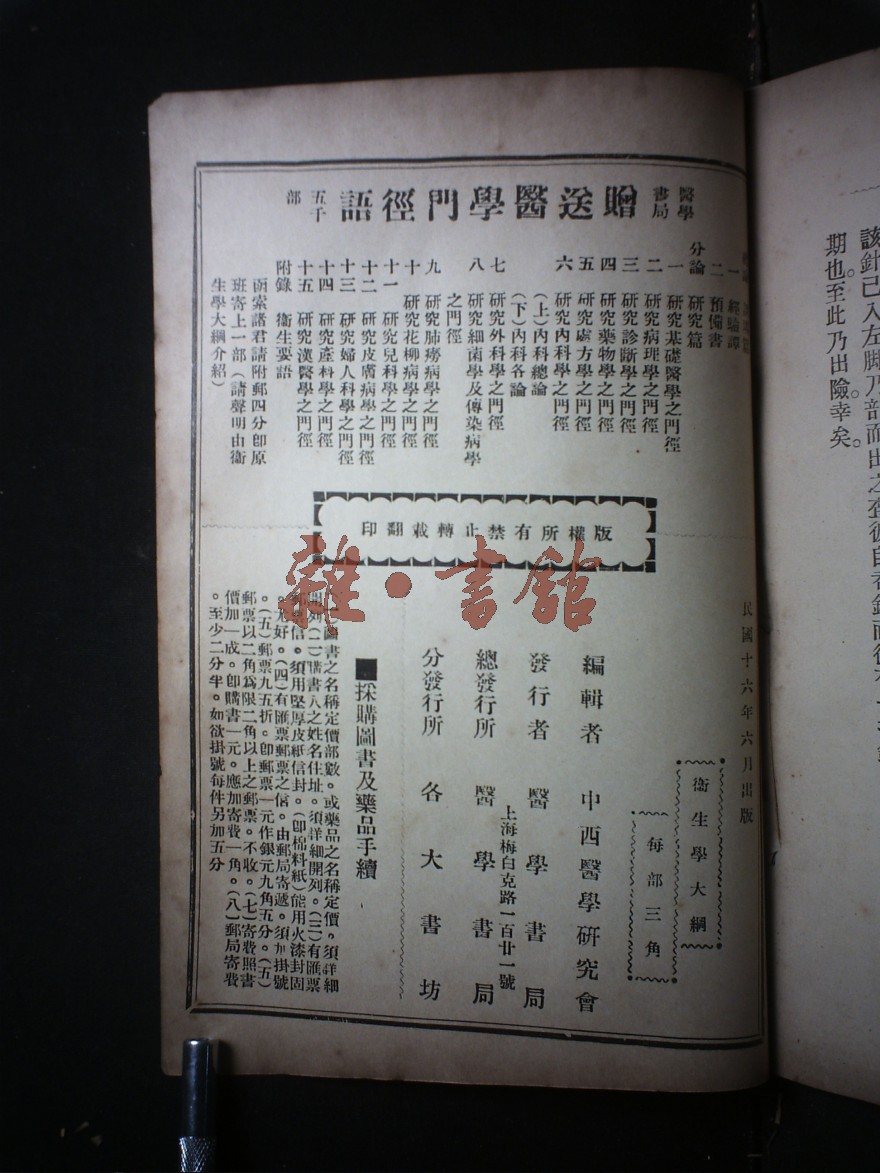 該針已入左脚乃部而出之
期也。至此乃出險。幸矣。
醫學
書局
贈送醫學門徑語
五千
部
一 經驗譚
二 預備書
分論 研究篇
一 研究基礎醫學之門徑
二 研究病理學之門徑
三 研究診斷學之門徑
四 研究藥物學之門徑
五 研究處方學之門徑
六 研究內科學之門徑
(上)內科總論
(下)內科各論
七 研究外科學之門徑
八 研究細菌學及傳染病學
之門徑
九 研究肺癆病學之門徑
十 研究花柳病學之門徑
十一 研究兒科學之門徑
十二 研究皮膚病學之門徑
十三 研究婦人科學之門徑
十四 研究產科學之門徑
十五 研究漢醫學之門徑
附錄 衛生要語
函索諸君請附郵四分卽原
班寄上一部(請聲明由衛
生學大綱介紹)
版權所有禁止轉載翻印
民國十六年六月出版
衛生學大綱
每部三角
編輯者 中西醫學研究會
發行者 醫學書局
上海梅白克路一百廿一號
總發行所 醫學書局
分發行所 各大書坊
■採購圖書及藥品手續
圖書之名稱定價部數。或藥品之名稱定價。須詳細
開列(二)購書人之姓名住址。須詳細開列。(三)有匯票
信。須用堅厚皮紙信封。(卽棉料紙)能用火漆封固
。尤好。(四)有匯票郵票之信。由郵局寄遞。須加掛號
。(五)郵票九五折。卽郵票一元作銀元九角五分。(五)
郵票以二角爲限二角以上之郵票。不收。(七)寄費照書
價加一成。卽購書一元。應加寄費一角。(八)郵局寄費
。至少二分半。如欲掛號每件另加五分
雜·書館